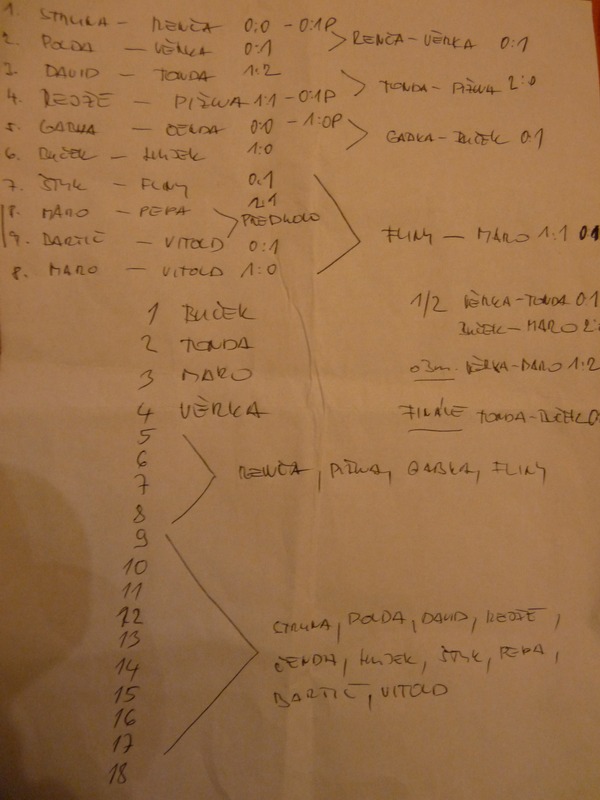 1. STRUNA - RENČA 0:0 - 0:1P
RENČA-VĚRKA 0:1
2. POLDA - VĚRKA 0:1
3. DAVID - TONDA 1:2
TONDA-PIŽWA 2:0
4. REDŽE - PIŽWA 1:1 - 0:1P
5. GABKA - ČENDA 0:0 - 1:0P
GABKA-BUČEK 0:1
6. BUČEK - HUJEK 1:0
7. ŠTYK - FLINY 0:1
8. MARO - PEPA 2:1
PŘEDKOLO
FLINY - MARO 1:1 0:1
9. BARTIČ - VITOLD 0:1
8. MARO - VITOLD 1:0
1 BUČEK
2 TONDA
3 MARO
4 VĚRKA
1/2 VĚRKA-TONDA 0:1
BUČEK-MARO 2:
o3m. VĚRKA-MARO 1:2
FINÁLE TONDA-BUČEK 0:
5
6
7
8
RENČA, PIŽWA, GABKA, FLINY
9
10
11
12
13
14
15
16
17
18
STRUNA, POLDA, DAVID, REDŽE,
ČENDA, HUJEK, ŠTYK, PEPA,
BARTIČ, VITOLD